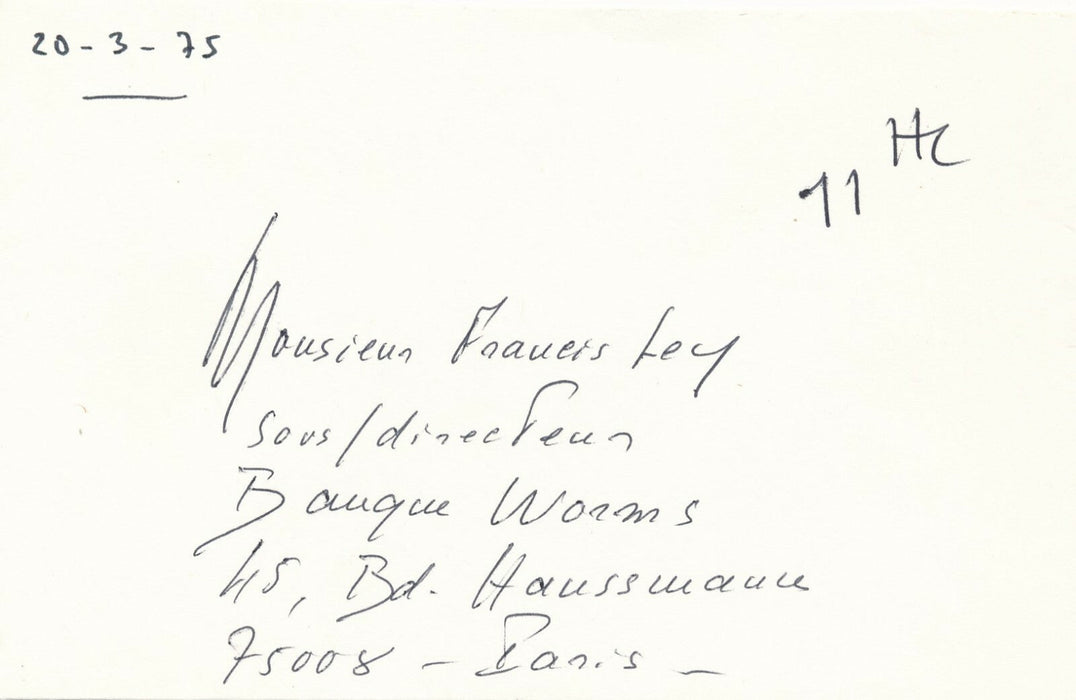 20-3-75
11 Hc
Monsieur Francis Ley
Sous/directeur
Banque Worms
45, Bd. Haussmann
75008 - Paris -